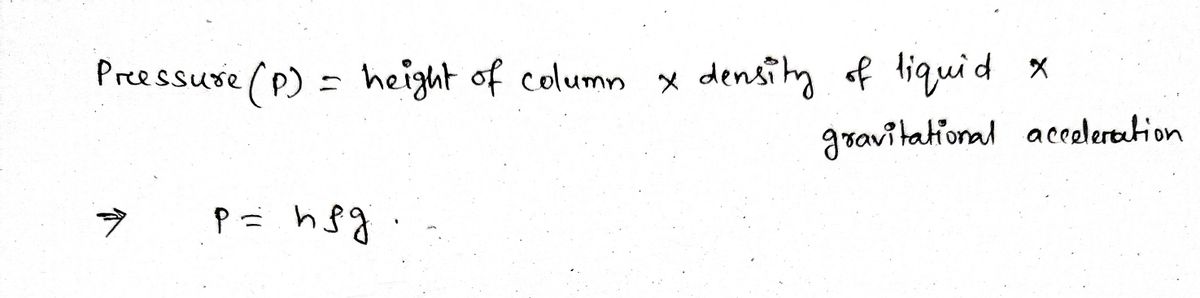 Pressure (P) = height of column x density of liquid x
gravitational acceleration
⇒ P = hρg.